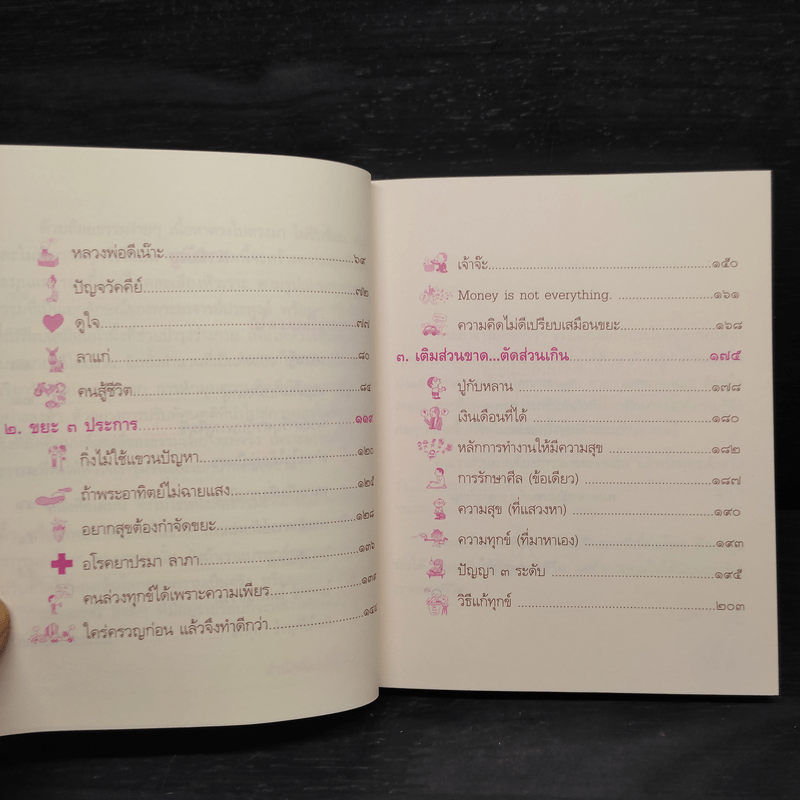 หลวงพ่อดีเน๊าะ...๖๙
ปัญจวัคคีย์...๗๒
ดูใจ...๗๗
ลาแก่...๘๐
คนสู้ชีวิต...๘๔
๒. ขยะ ๓ ประการ...๑๑๙
กิ่งไม้ใช้แขวนปัญหา...๑๒๐
ถ้าพระอาทิตย์ไม่ฉายแสง...๑๒๕
อยากสุขต้องกำจัดขยะ...๑๒๘
อโรคยาปรมา ลาภา...๑๓๖
คนล่วงทุกข์ได้เพราะความเพียร...๑๓๙
ใคร่ครวญก่อน แล้วจึงทำดีกว่า...๑๔๔
เจ้าจ๊ะ...๑๕๐
Money is not everything. ...๑๖๑
ความคิดไม่ดีเปรียบเสมือนขยะ...๑๖๘
๓. เติมส่วนขาด...ตัดส่วนเกิน...๑๗๕
ปู่กับหลาน...๑๗๘
เงินเดือนที่ได้...๑๘๐
หลักการทำงานให้มีความสุข...๑๘๒
การรักษาศีล (ข้อเดียว)...๑๘๗
ความสุข (ที่แสวงหา)...๑๙๐
ความทุกข์ (ที่มาหาเอง)...๑๙๓
ปัญญา ๓ ระดับ...๑๙๕
วิธีแก้ทุกข์...๒๐๓